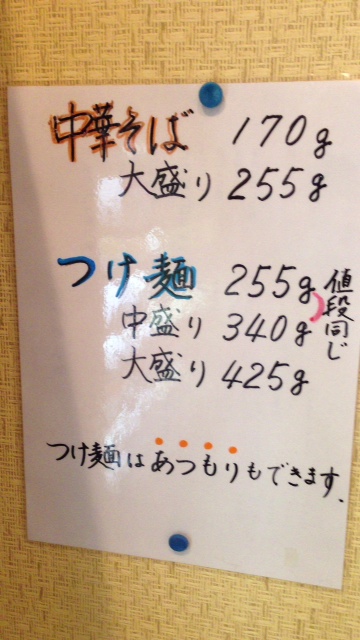 中華そば 170g
大盛り 255g
つけ麺 255g
中盛り 340g
値段同じ
大盛り 425g
つけ麺はあつもりもできます.